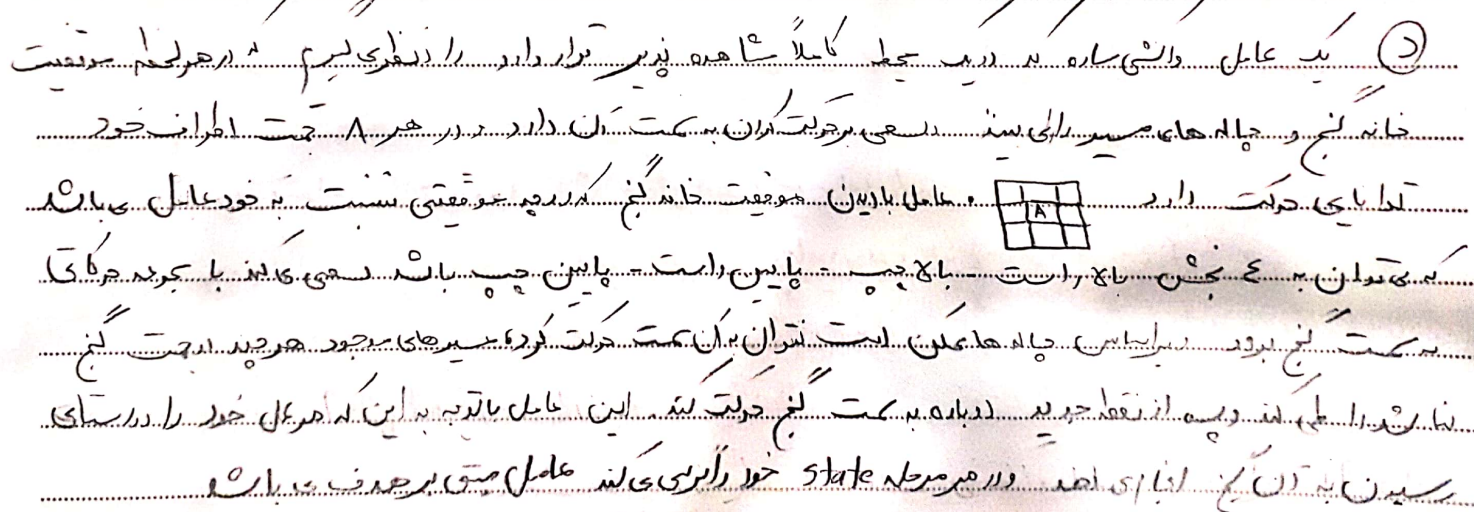 د) یک عامل واکنشی ساده که در یک محیط کاملاً مشاهده پذیر قرار دارد را در نظر می گیریم که در هر لحظه موقعیت
خانه گنج و چاله های مسیر را می بیند و سعی بر حرکت کردن به سمت آن دارد و در هر ۸ جهت اطراف خود
توانایی حرکت دارد A . عامل با دیدن موقعیت خانه گنج که در چه موقعیتی نسبت به خود عامل می باشد
که می توان به ٤ بخش بالا راست - بالا چپ - پایین راست - پایین چپ باشد سعی می کند با مجموعه حرکاتی
به سمت گنج برود و بر اساس چاله ها ممکن است نتوان به آن سمت حرکت کرد مسیرهای موجود هر چند در جهت گنج
نباشد را طی می کند و سپس از نقطه جدید دوباره به سمت گنج حرکت کند. این عامل با توجه به این که اعمال خود را در راستای
رسیدن به آن گنج انجام می دهد و در هر مرحله state خود را بررسی می کند عامل مبتنی بر هدف می باشد